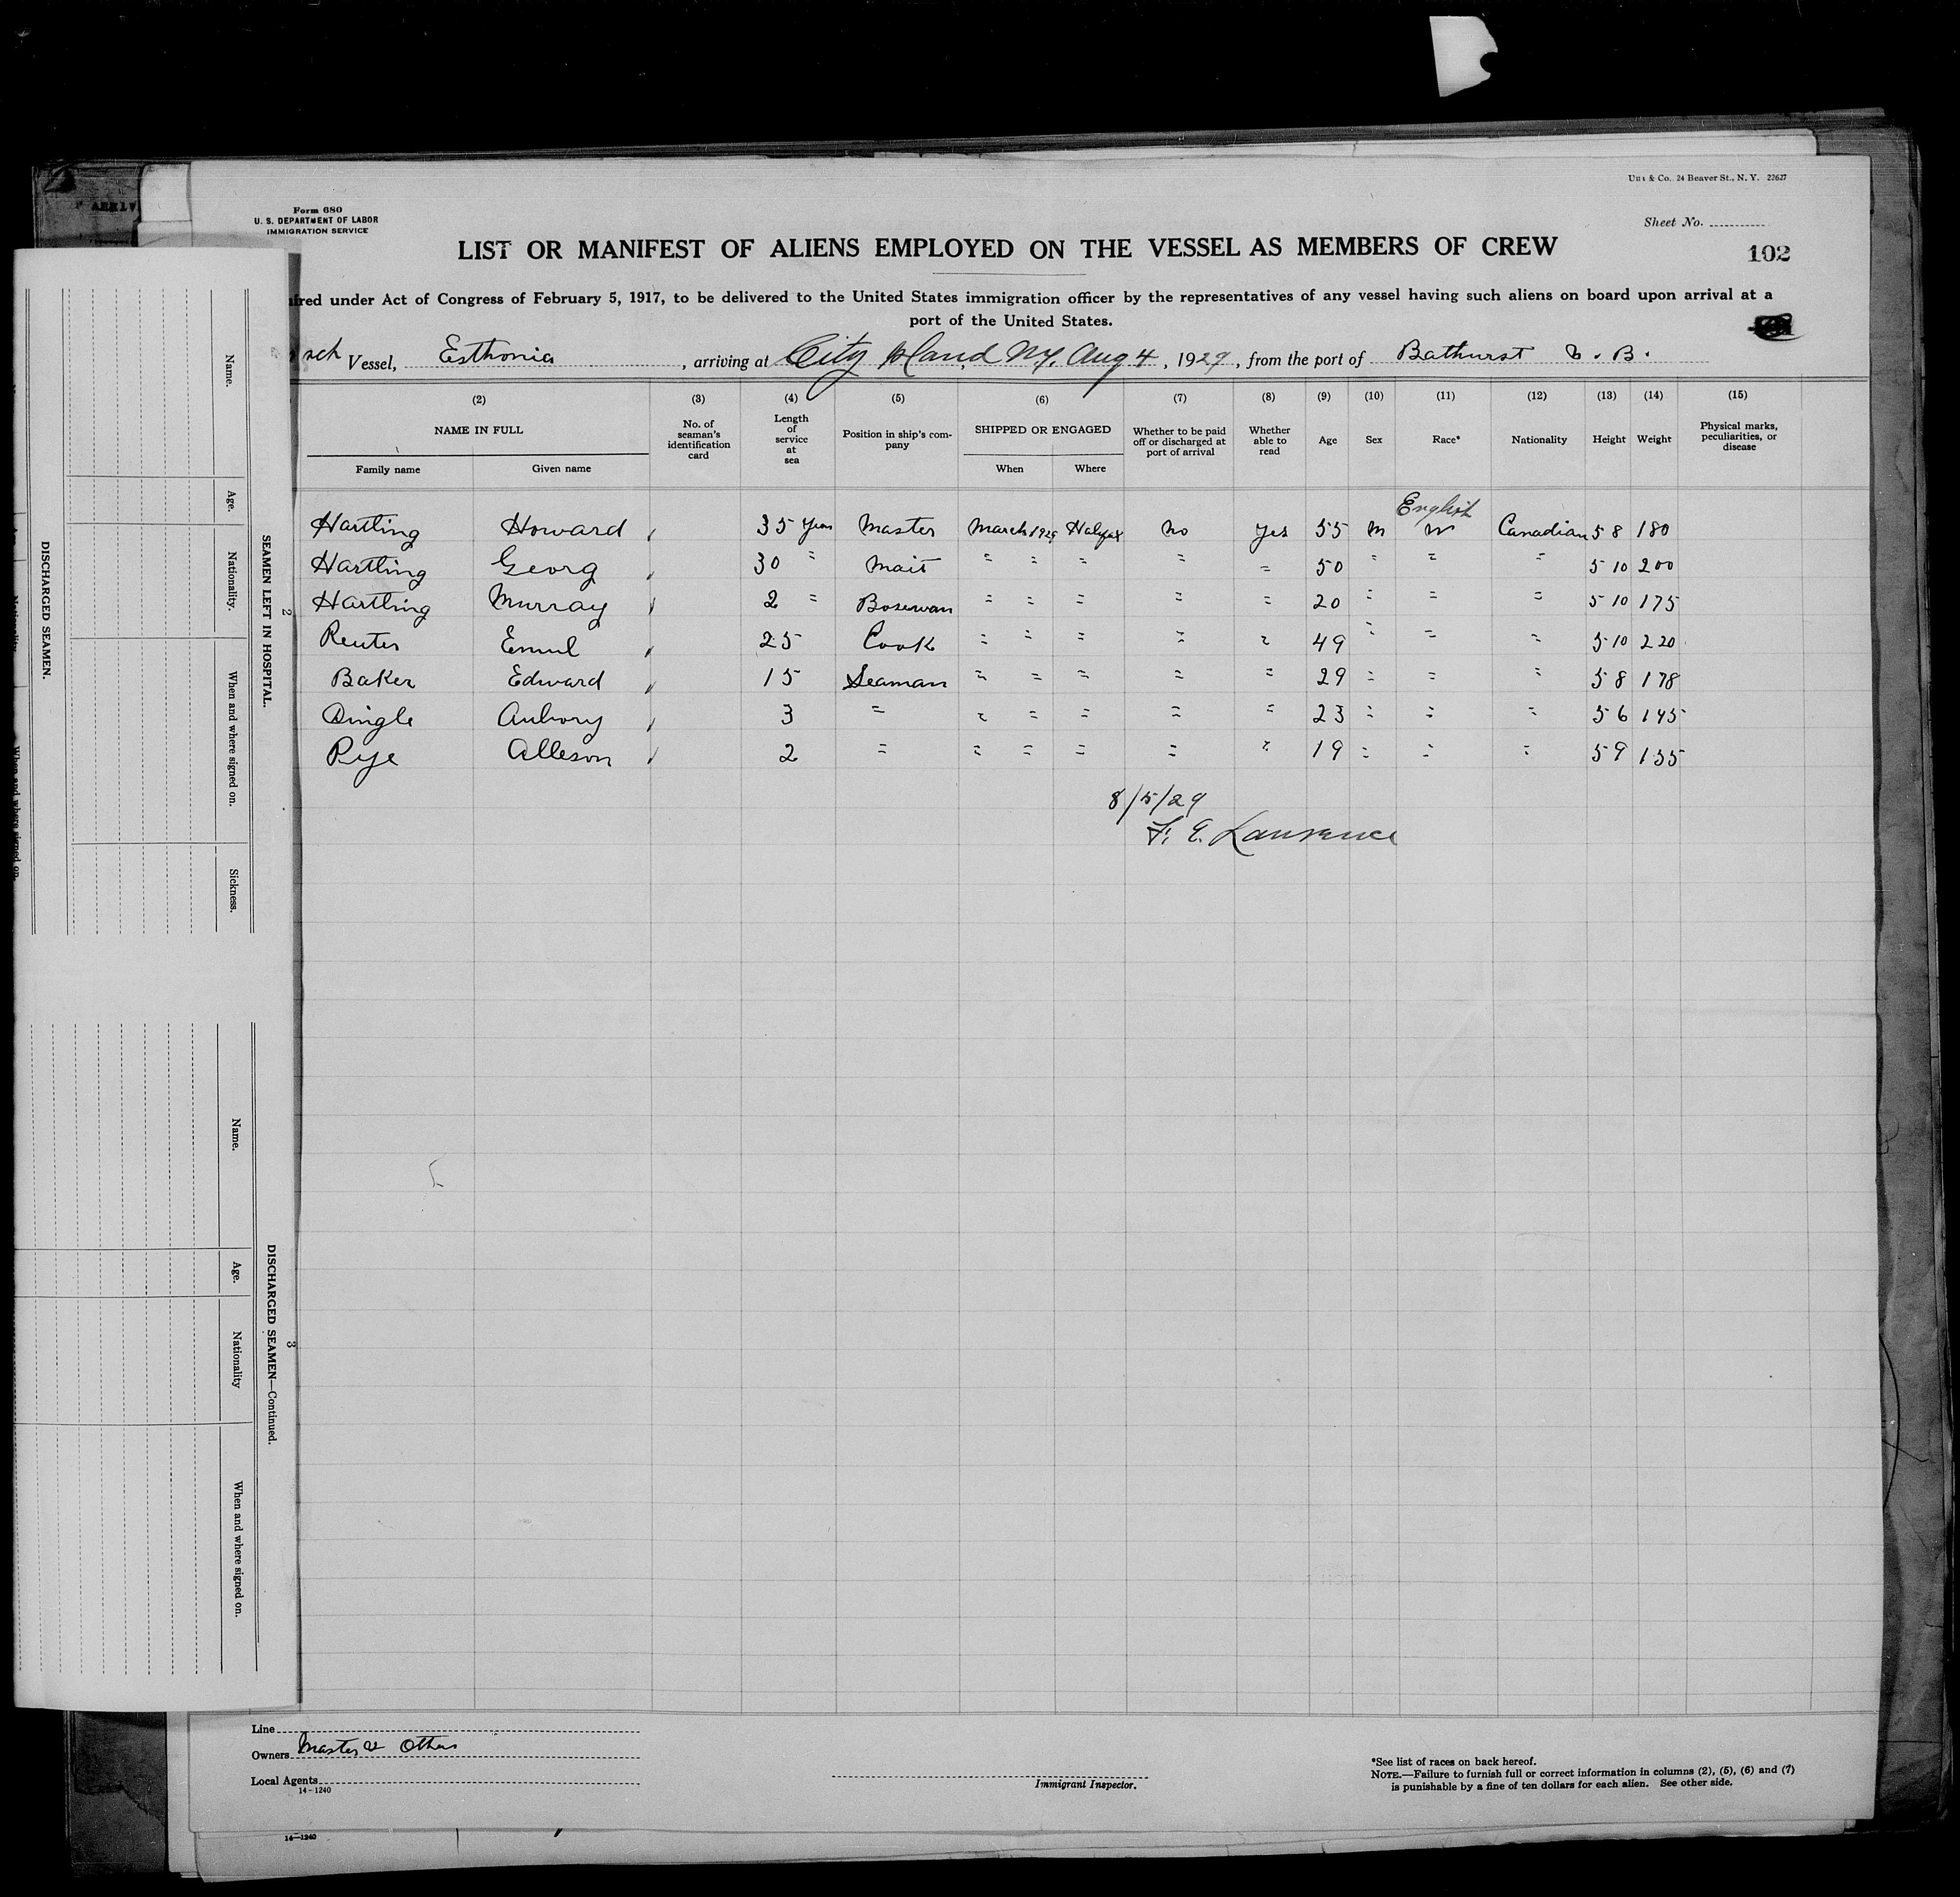 Form 680
U. S. DEPARTMENT OF LABOR
IMMIGRATION SERVICE
& Co., 24 Beaver St., N. Y. 22627
Sheet No.
102
LIST OR MANIFEST OF ALIENS EMPLOYED ON THE VESSEL AS MEMBERS OF CREW
ired under Act of Congress of February 5, 1917, to be delivered to the United States immigration officer by the representatives of any vessel having such aliens on board upon arrival at a
port of the United States.
sch Vessel, Esthonia, arriving at City Island, N.Y. Aug 4, 1929, from the port of Bathurst N. B.
(2) (3) (4) (5) (6) (7) (8) (9) (10) (11) (12) (13) (14) (15)
NAME IN FULL No. of seaman's identification card Length of service at sea Position in ship's company SHIPPED OR ENGAGED Whether to be paid off or discharged at port of arrival Whether able to read Age Sex Race* Nationality Height Weight Physical marks, peculiarities, or disease
Family name Given name When Where
English
Hartling Howard 35 years Master March 1929 Halifax No Yes 55 M W Canadian 5 8 180
Hartling Georg 30 " Mait " " " " " 50 " " " 5 10 200
Hartling Murray 2 " Bosewan " " " " " 20 " " " 5 10 175
Reuter Emul 25 Cook " " " " " 49 " " " 5 10 220
Baker Edward 15 Seaman " " " " " 29 " " " 5 8 178
Dingle Aubory 3 " " " " " " 23 " " " 5 6 145
Rye Alleson 2 " " " " " " 19 " " " 5 9 155
8/5/29
F. E. Lawrence
Line
Owners Master & Others
Local Agents
14-1240
Immigrant Inspector.
*See list of races on back hereof.
NOTE.—Failure to furnish full or correct information in columns (2), (5), (6) and (7)
is punishable by a fine of ten dollars for each alien. See other side.
14-1240
2
SEAMEN LEFT IN HOSPITAL.
Name. Age. Nationality. When and where signed on. Sickness.
DISCHARGED SEAMEN.
When and where signed on.
3
DISCHARGED SEAMEN—Continued.
Name. Age. Nationality When and where signed on.